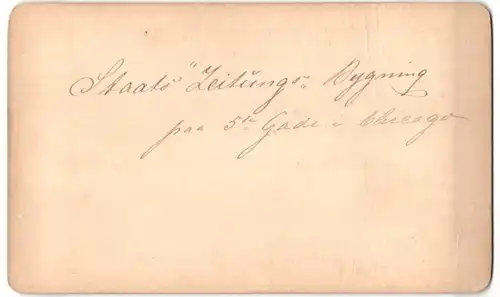 Staats "Zeitungs" Bygning
paa 5te Gade i Chicago